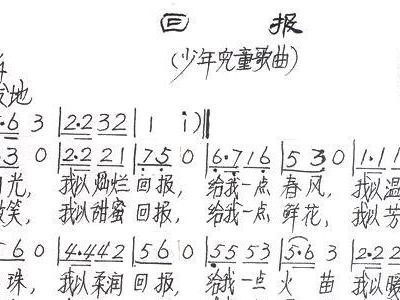 回 报
(少年儿童歌曲)
地
6 3 | 2·2 32 | 1 i)‖
3 0 | 2·2 21 | 75 0 | 6·716 | 5 30 | 1·1
光, 我以灿烂回报, 给我一点 春风, 我以温
笑, 我以甜蜜回报, 给我一点 鲜花, 我以芳
5 6 0 | 4·442 | 56 0 | 55 53 | 5·6 3 | 2·22
珠, 我以柔润回报, 给我一点 火 苗 我以暖